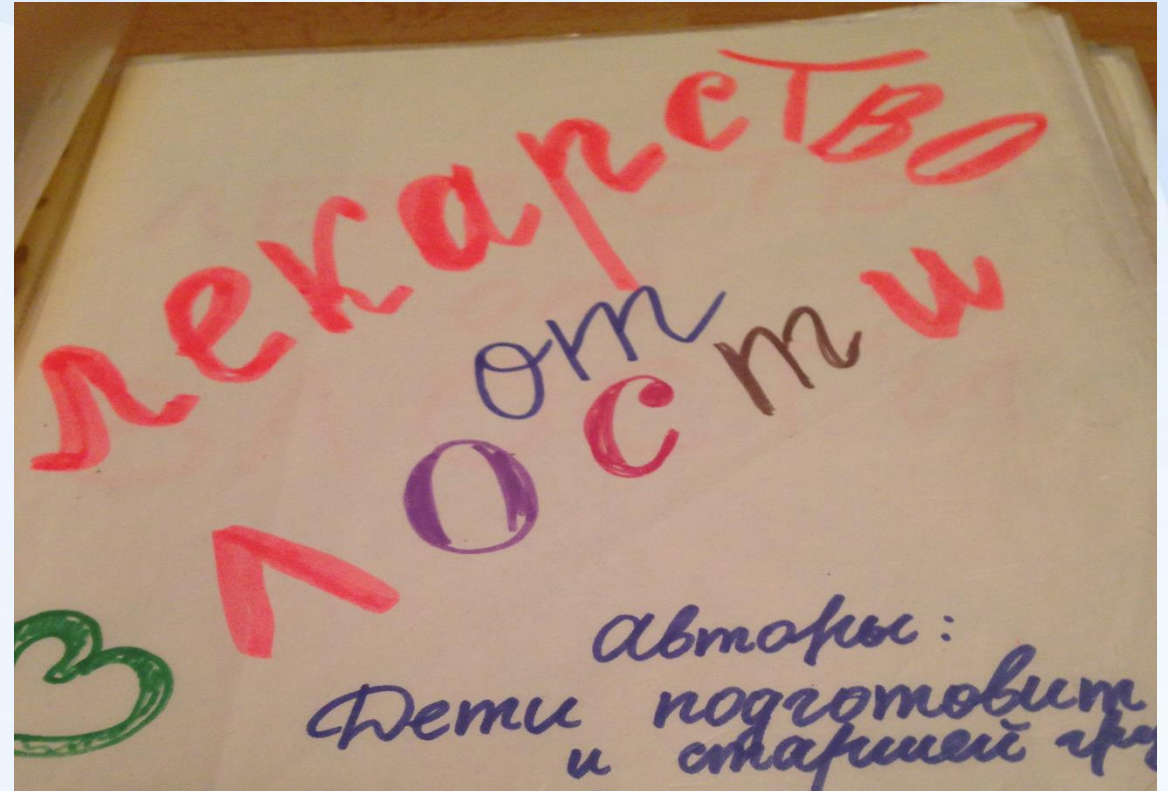 лекарство
от
злости
Авторы:
Дети подготовит
и старшей гру